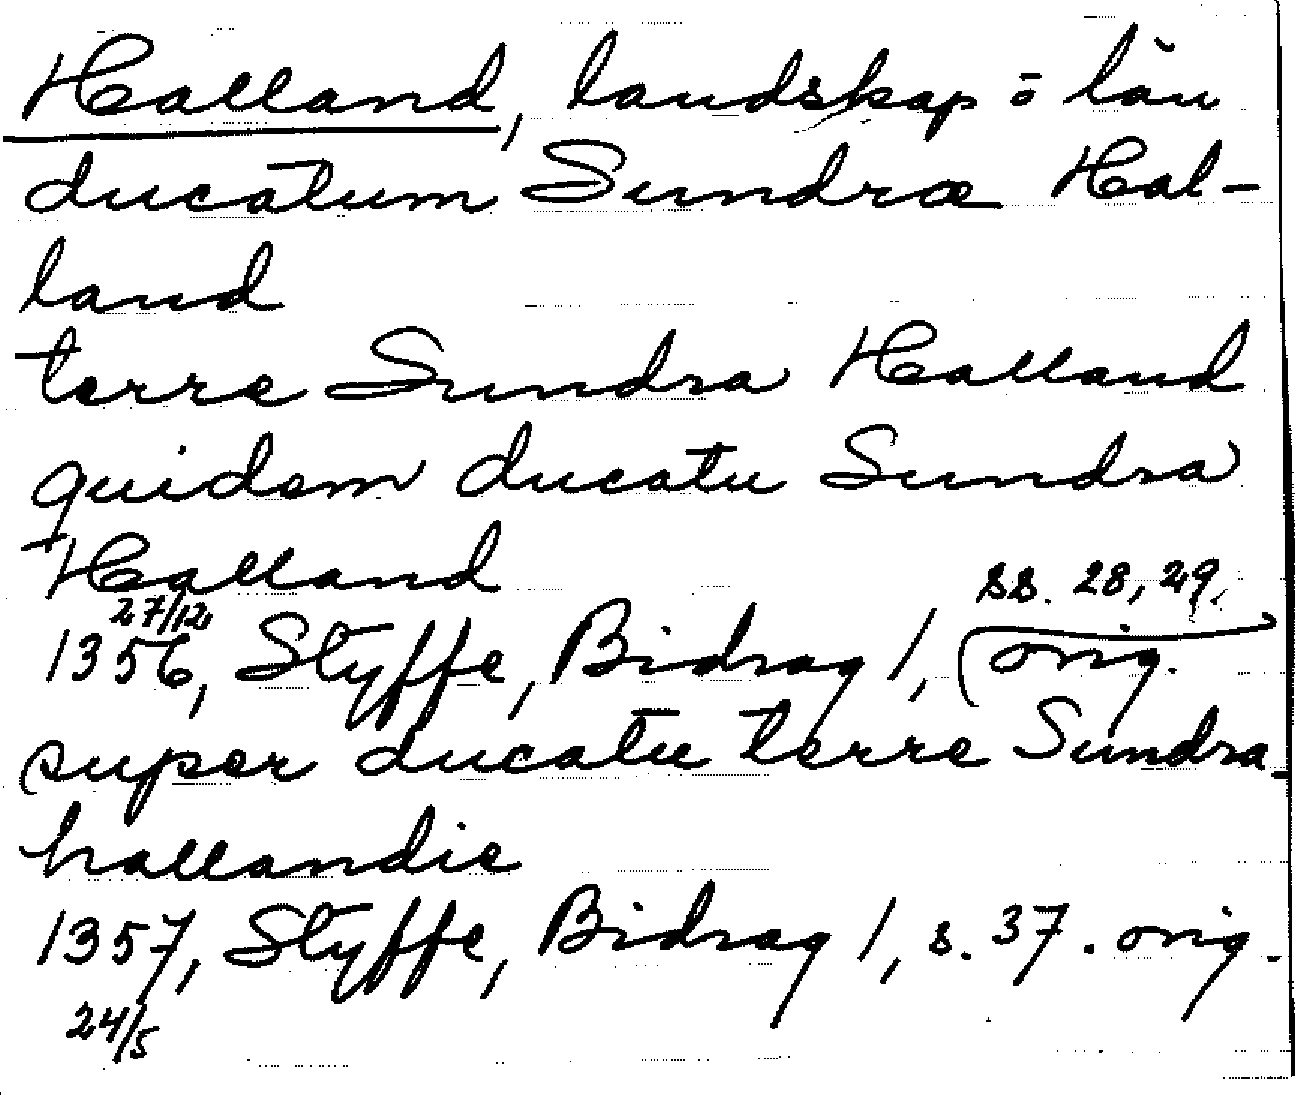 Halland, landskap o län
ducatum Sundræ Hal-
land
terre Sundra Halland
quidem ducatu Sundra
Halland
ss. 28, 29.
27/12
1356, Styffe, Bidrag 1, orig.
super ducatu terre Sundra-
hallandie
1357, Styffe, Bidrag 1, s. 37. orig.
24/5